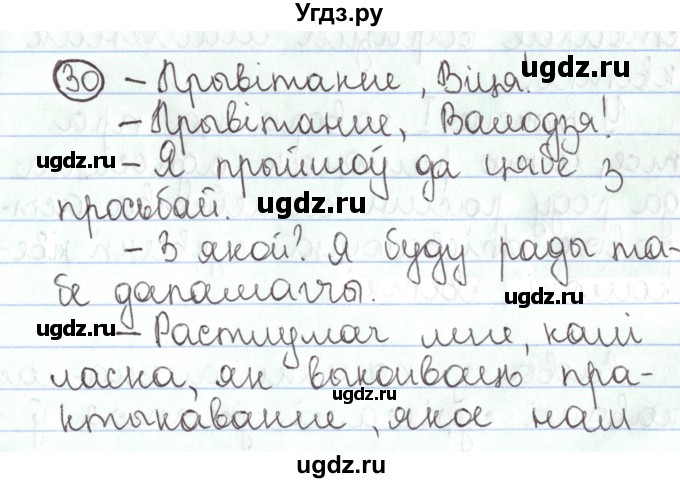 Угдз.ру
30 – Прывітанне, Віця!
ugdz.ru
– Прывітанне, Валодзя!
ugdz.ru
– Я прыйшоў да цябе з
ugdz.ru
просьбай.
ugdz.ru
– З якой? Я буду рады та-
бе дапамагчы.
ugdz.ru
– Растлумач мне, калі
ласка, як выконваць пра-
ugdz.ru
ктыкаванне, якое нам
ugdz.ru